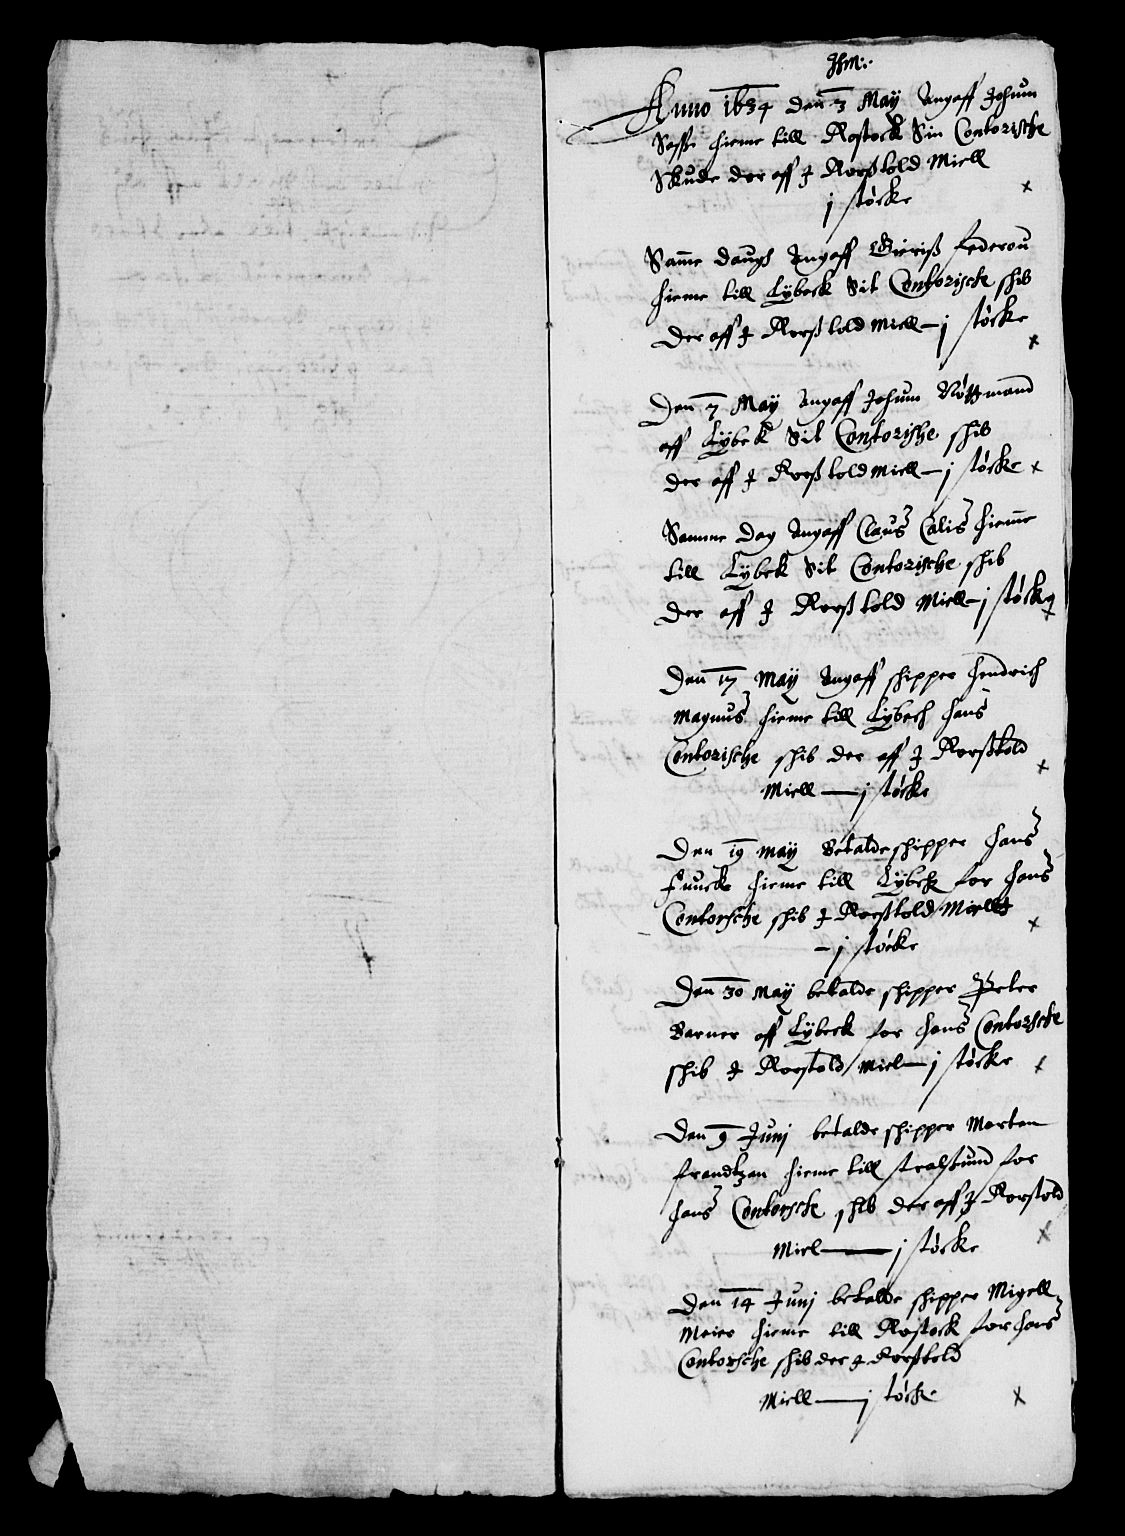 Anno 1634 den 3 May Angaff Johum
Sasse hieme till Rostock Sin Contorische
Skude der aff J Rorstold Miell
j støcke
Samme daugh Angaff federou
hieme till Lÿbeck Sit Contorische skib
Der aff J Rorstold Miell — j støcke
Den 7 May Angaff Johum Nøttmand
aff Lÿbeck Sit Contorische skib
der aff J Rorstold Miell — j støcke
Samme Dag Angaff Claus Calis hieme
till Lÿbek Sit Contorische skib
der aff J Rorstold Miell — j støcke
Den 17 May Angaff skipper Hendrich
Magnus hieme till Lÿbech hans
Contorische skib der aff J Rorstold
Miell — j støcke
Den 19 May Betalde skipper Hans
Funcke hieme till Lÿbeck for hans
Contorsche skib J Rorstold Miell
— j støcke
Den 30 May betalde skipper Peter
Barner aff Lÿbeck for hans Contorsche
skib J Rorstold Miel — j støcke
Den 9 Junj betalde skipper Morten
frandtzen hieme till stralsund for
hans Contorsche skib der aff J Rorstold
Miel — j støcke
Den 14 Junj betalde skipper Migell
Meier hieme till Rostock for hans
Contorsche skib der J Rorstold
Miell — j støcke